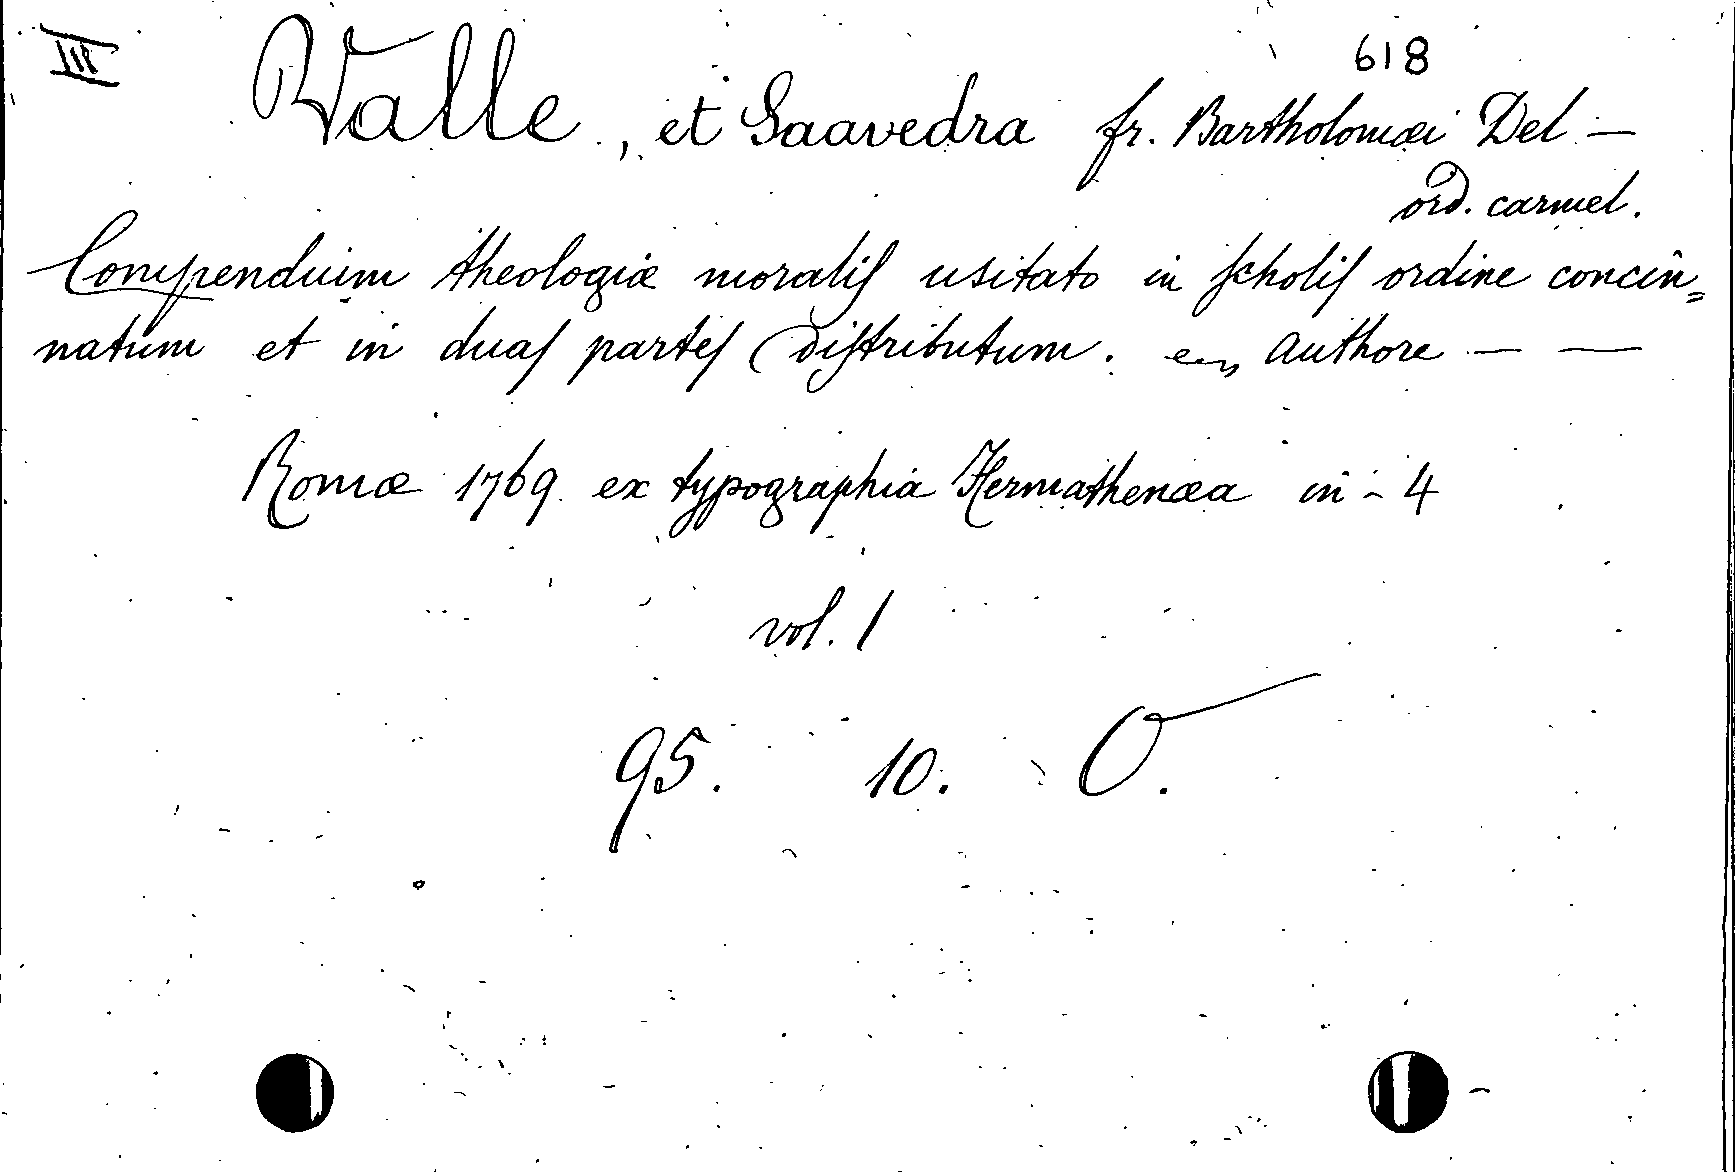 III 618
Valle, et Saavedra fr. Bartholomæi Del —
ord. carmel.
Compendium theologiæ moralis usitato in scholis ordine concin=
natum et in duas partes distributum. authore — —
Romæ 1769 ex typographia Hermathenæa in-4
vol. 1
95. 10. O.